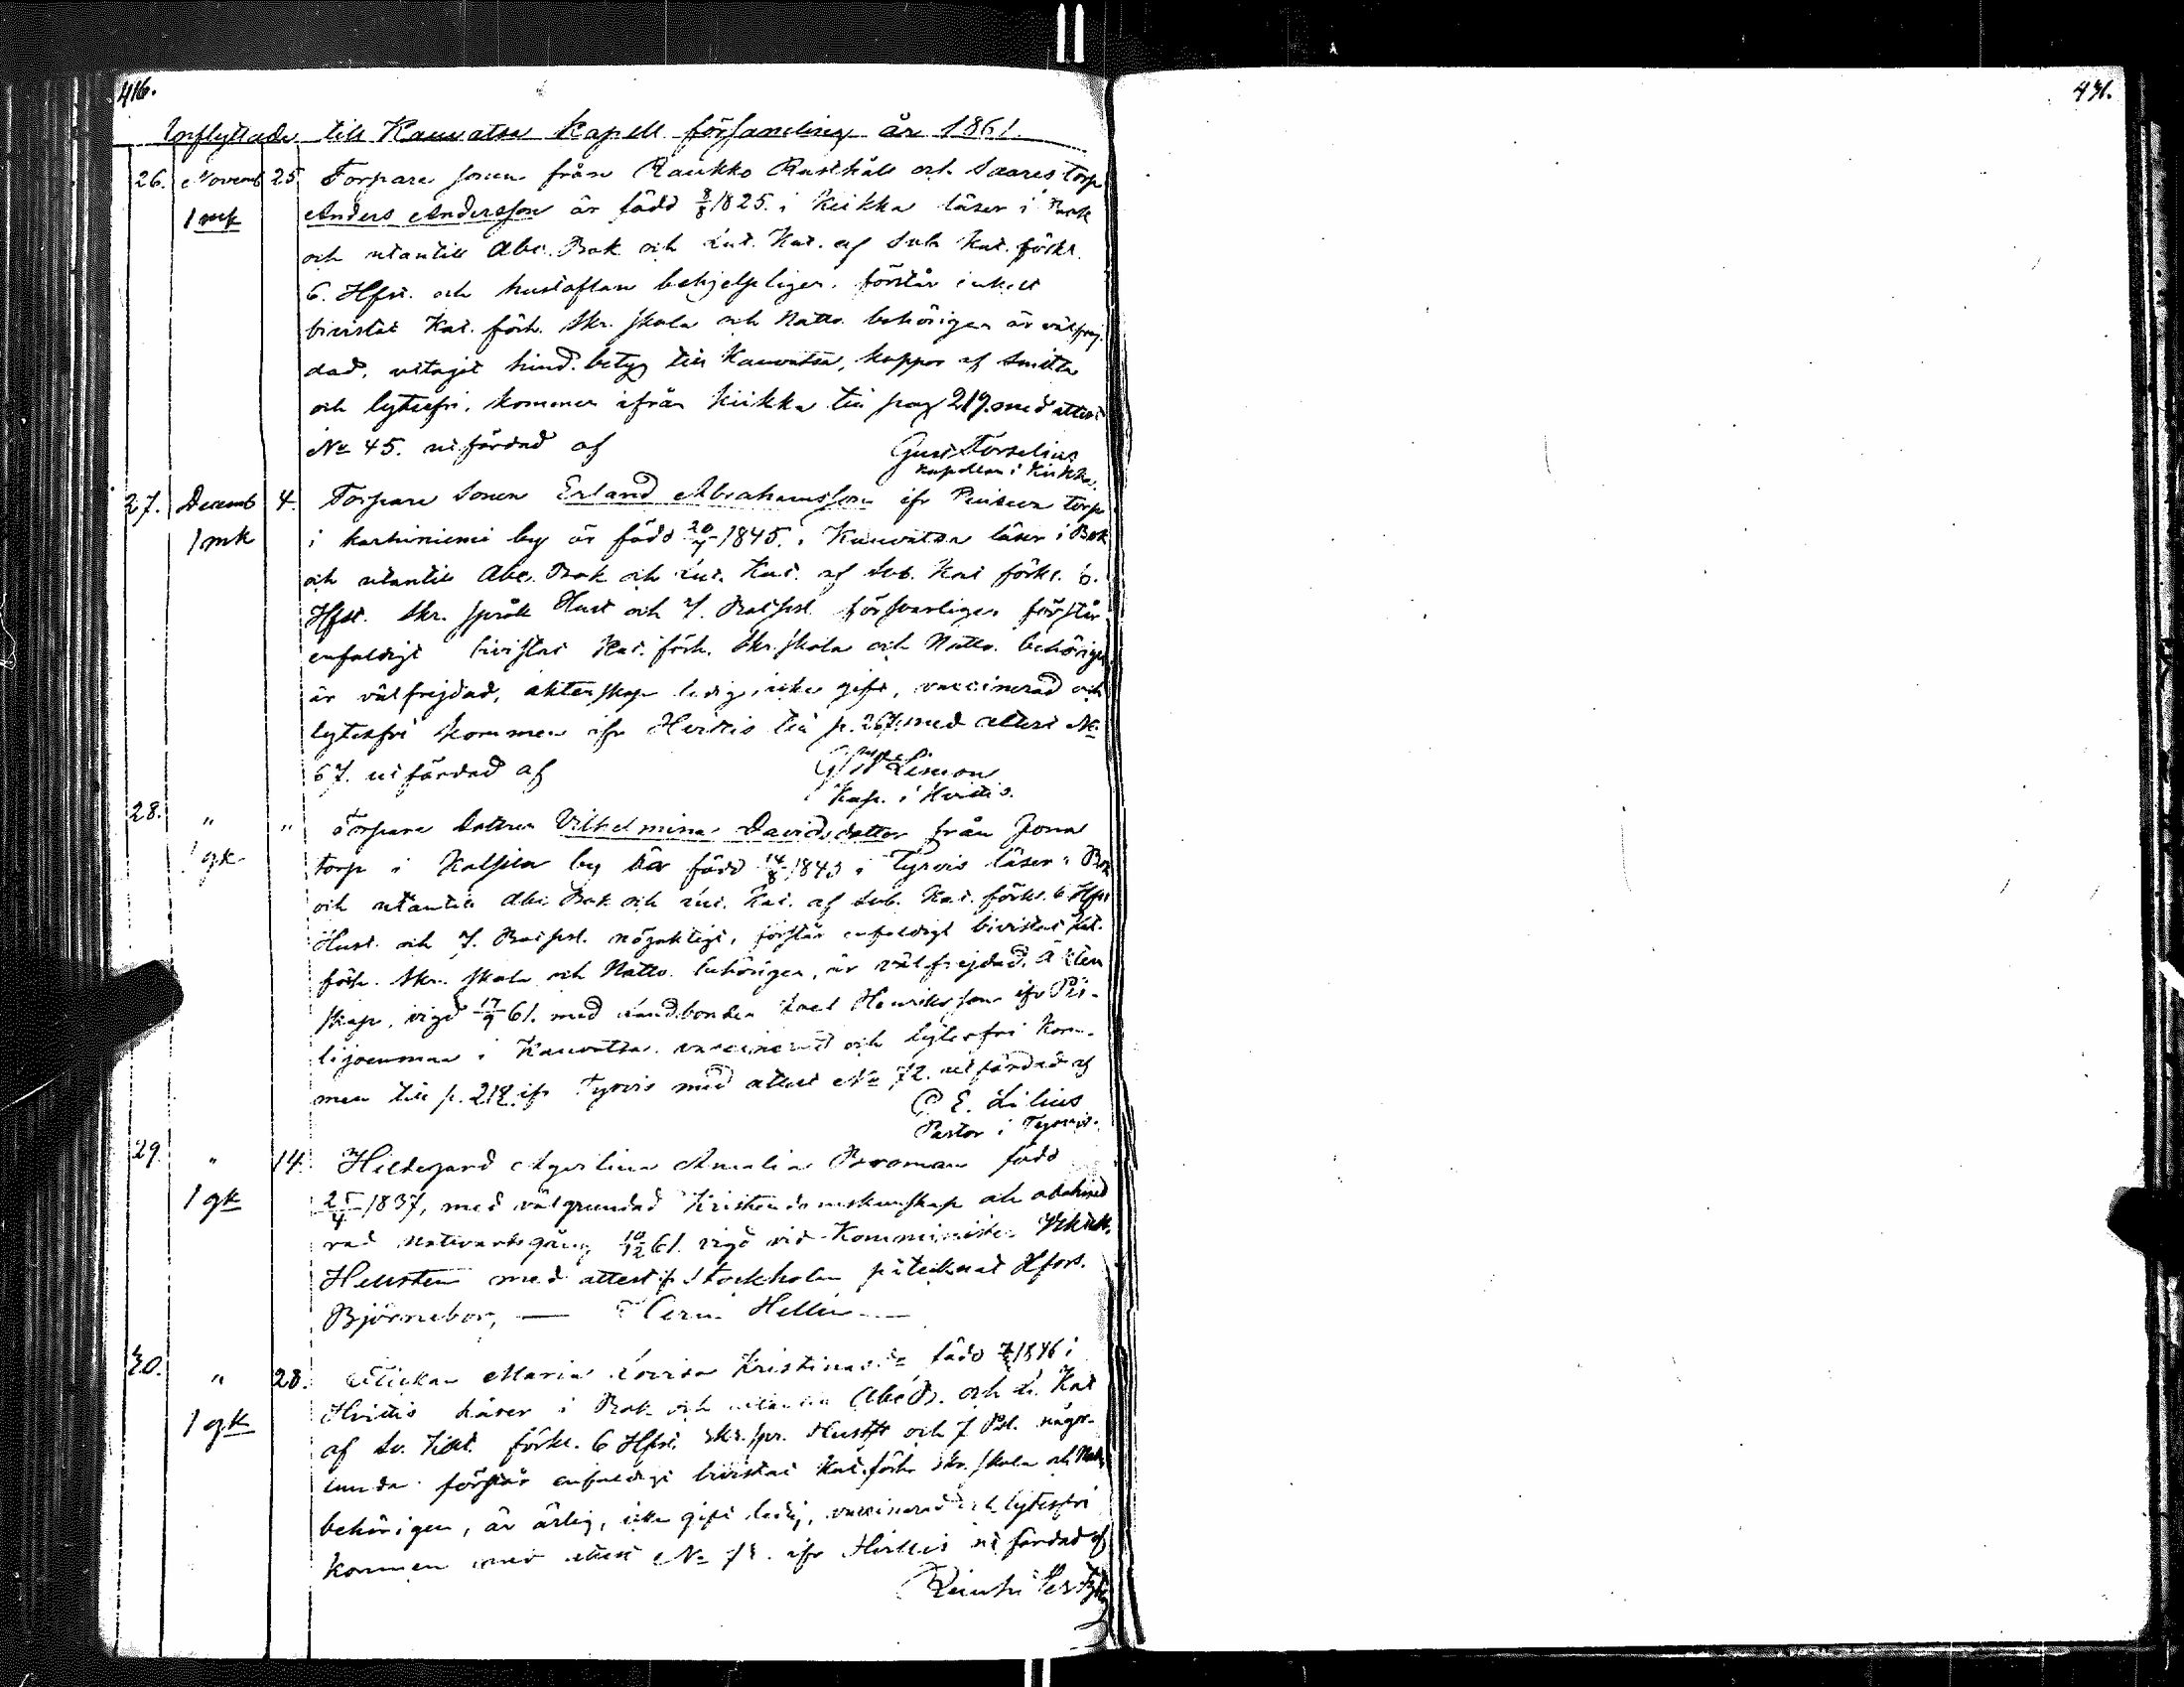 416.
431.
Inflyttade till Kauvatsa kapell församling år 1861.
26. Novemb 25 Torpare sonen från Raukko Rusthåll och Saares torp
1 mk Anders Andersson är född 8/8 1825. i Kiikka läser i Bok
och utantill Abc. Bok och Lut. Kat. af Sveb. Kat. förkl.
6. Hfst. och hustaflan behjelpligen, förstår enkelt
bivistat Kat. förh. Skr. skola och Nattv. behörigen är välfrej-
dad, uttagit hind. betyg till Kauvatsa, koppor af smitta
och lytesfri, kommen ifrån Kiikka till pag 219. med attest
No 45. utfärdad af Gust Törselius
Kapellan i Kiikka.
27. Decemb 4. Torpare Sonen Erland Abrahamsson ifr torp
1 mk i Karhiniemi by är född 20/7 1845. i Kauvatsa läser i Bok
och utantill Abc. Bok och Lut. Kat. af Sveb. Kat förkl. 6.
Hfst. Skr. språk Hust och 7. Botpsl. försvarligen förstår
enfaldigt bivistat Kat. förh. Skr. skola och Nattv. behörigen
är välfrejdad, äktenskap ledig, icke gift, vaccinerad och
lytesfri kommen ifr Hvittis till p. 267. med attest No
67. utfärdad af G W Limon
Kap. i Hvittis.
28. " " Torpare dottren Vilhelmina Davidsdotter från Jona
1 gk torp i Kalsila by här född 14/8 1843 i Tyrvis läser i Bok
och utantill Abc Bok och Lut. Kat. af Sveb. Kat. förkl. 6 Hfst
Hust. och 7. Botpsl. nöjaktigt, förstår enfaldigt bivistat Kat.
förh. Skr. skola och Nattv. behörigen, är välfrejdad. Äkten
skap, vigd 17/9 61. med Landbonden Henriksson ifr Pii-
lijoenmaa i Kauvatsa. vaccinerad och lytesfri Kom-
men till p. 212. ifr Tyrvis med attest No 72. utfärdad af
C. E. Lilius
Pastor i Tyrvis.
29. " 14. Hildegard Amalia Broman född
1 gk 25/4 1837, med välgrundad Kristendomskunskap och admitte
rad nattvardsgång 10/12 61. vigd vid Komminister
Hellsten med attest ifr Stockholm påtecknat Hfors.
Björneborg, — Herm. Hellén —
30. " 28. Flickan Maria Lovisa Kristinasdr född 1846 i
1 gk Hvittis läser i Bok och utantill Abc B. och L. Kat
af Sv. Kat. förkl. 6 Hfst. Skr. spr. Hustfl och 7 Psl. någor-
lunda förstår enfaldigt bivistat Kat. förh Skr. skola och Nattv
behörigen, är ärlig, icke gift ledig, vaccinerad och lytesfri
kommen med attest No ifr Hvittis utfärdad af